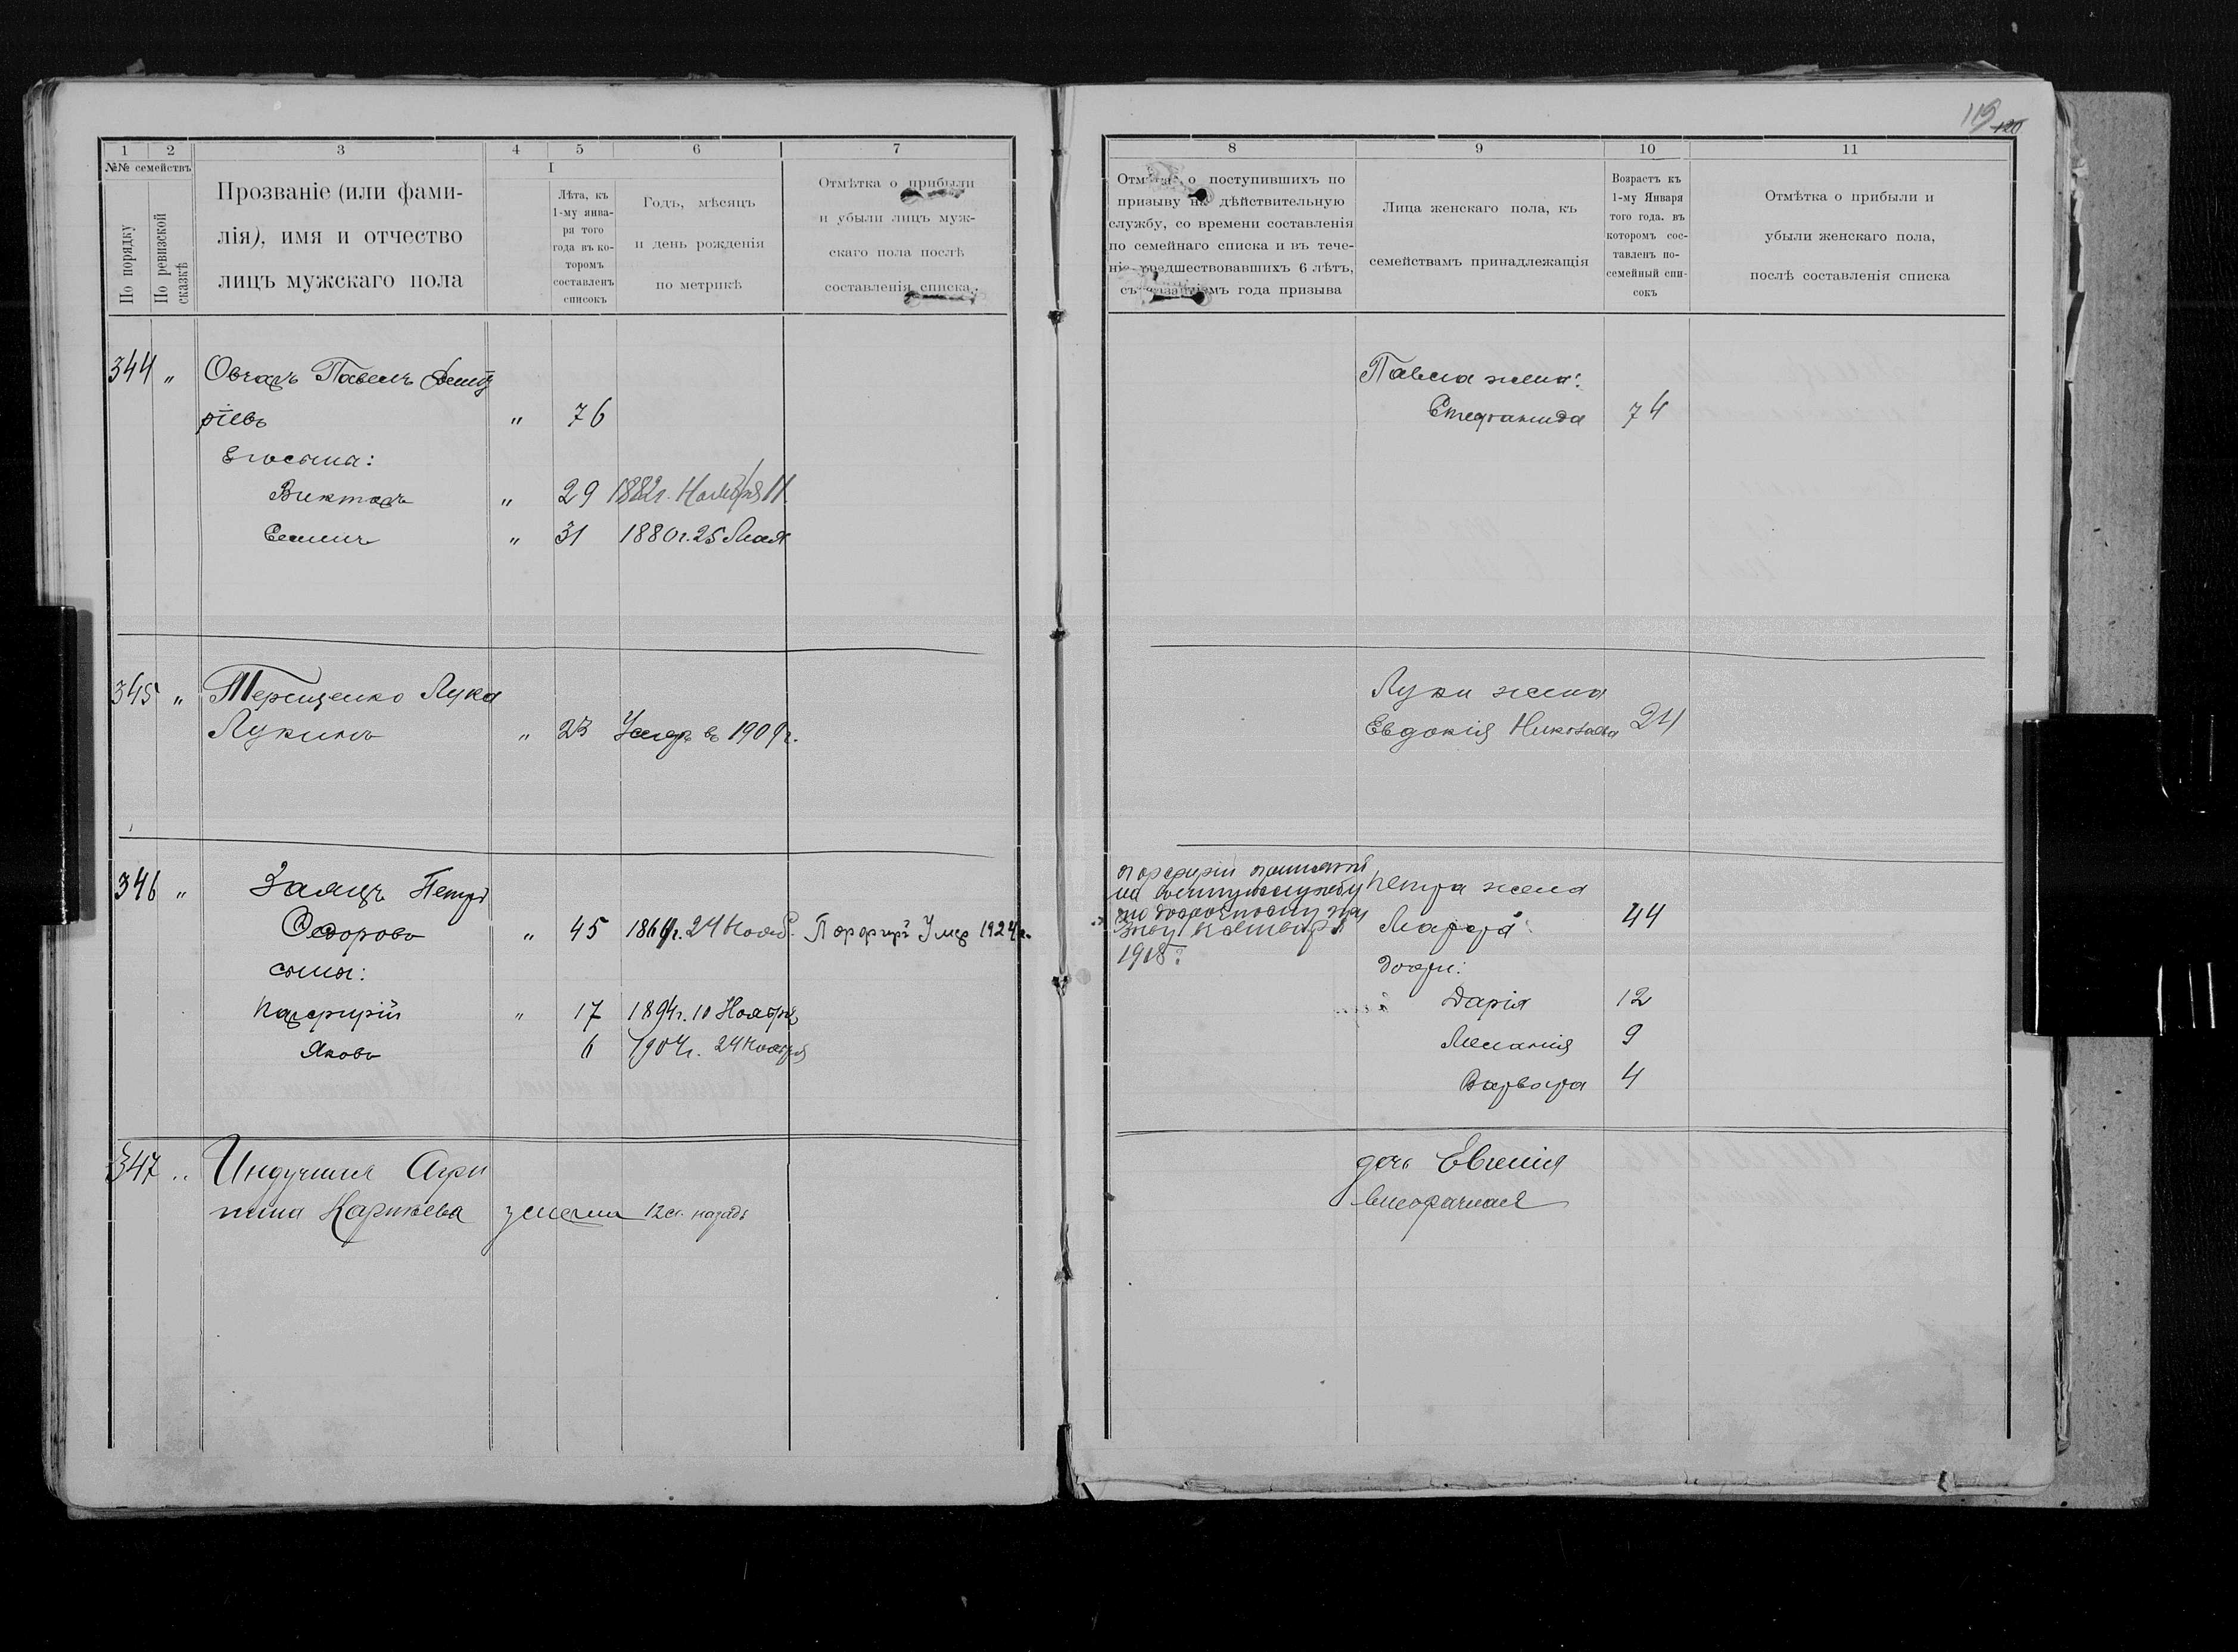 119 120
1 2 3 4 5 6 7
№№ семействъ
По порядку
По ревизской сказкѣ
Прозваніе (или фами-
лія), имя и отчество
лицъ мужскаго пола
I
Лѣта, къ
1-му янва-
ря того
года въ ко-
торомъ
составленъ
списокъ
Годъ, мѣсяцъ
и день рожденія
по метрикѣ
Отмѣтка о прибыли
и убыли лицъ муж-
скаго пола послѣ
составленія списка.
344 „ Овчаръ Павелъ Дмит
ріевъ „ 76
Его сына:
Викторъ „ 29 1882г. Ноября 11
Семенъ „ 31 1880г. 25 Мая
345 „ Терещенко Лука
Лукинъ „ 23 Умеръ въ 1909г.
346 „ Заяцъ Петръ
Ѳедоровъ „ 45 24 Нояб. Порфирій Умер 1924г.
сыны:
Парфирій „ 17 1894г. 10 Ноября
Яковъ 6 1904г. 24 Ноября
347 „ Агри
пина Карпѣева 12 л. назадъ
8 9 10 11
Отмѣтка о поступившихъ по
призыву на дѣйствительную
службу, со времени составленія
по семейнаго списка и въ тече-
ніе предшествовавшихъ 6 лѣтъ,
съ указаніемъ года призыва
Лица женскаго пола, къ
семействамъ принадлежащія
Возрастъ къ
1-му Января
того года. въ
которомъ сос-
тавленъ по-
семейный спи-
сокъ
Отмѣтка о прибыли и
убыли женскаго пола,
послѣ составленія списка
Павла жена:
Стефанида 74
Луки жена
Евдокія Николаева 24
Порфирій принятъ
на военную службу
по досрочному при
зыву
Петра жена
Марфа 44
дочри:
Дарія 12
Меланія 9
Варвара 4
дочь Евгенія
внебрачная